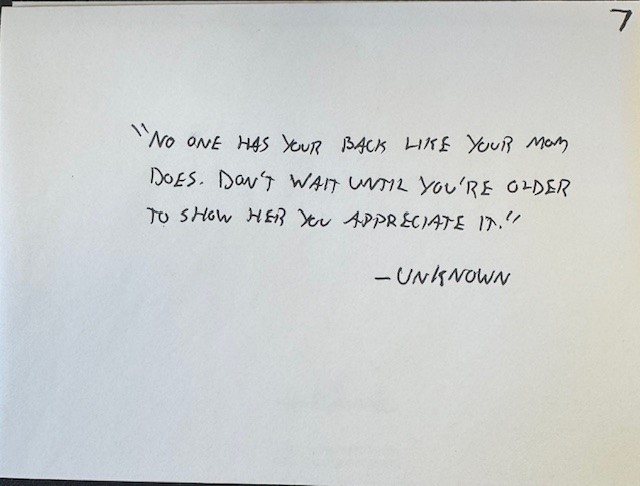 7
"NO ONE HAS YOUR BACK LIKE YOUR MOM
DOES. DON'T WAIT UNTIL YOU'RE OLDER
TO SHOW HER YOU APPRECIATE IT."
-UNKNOWN